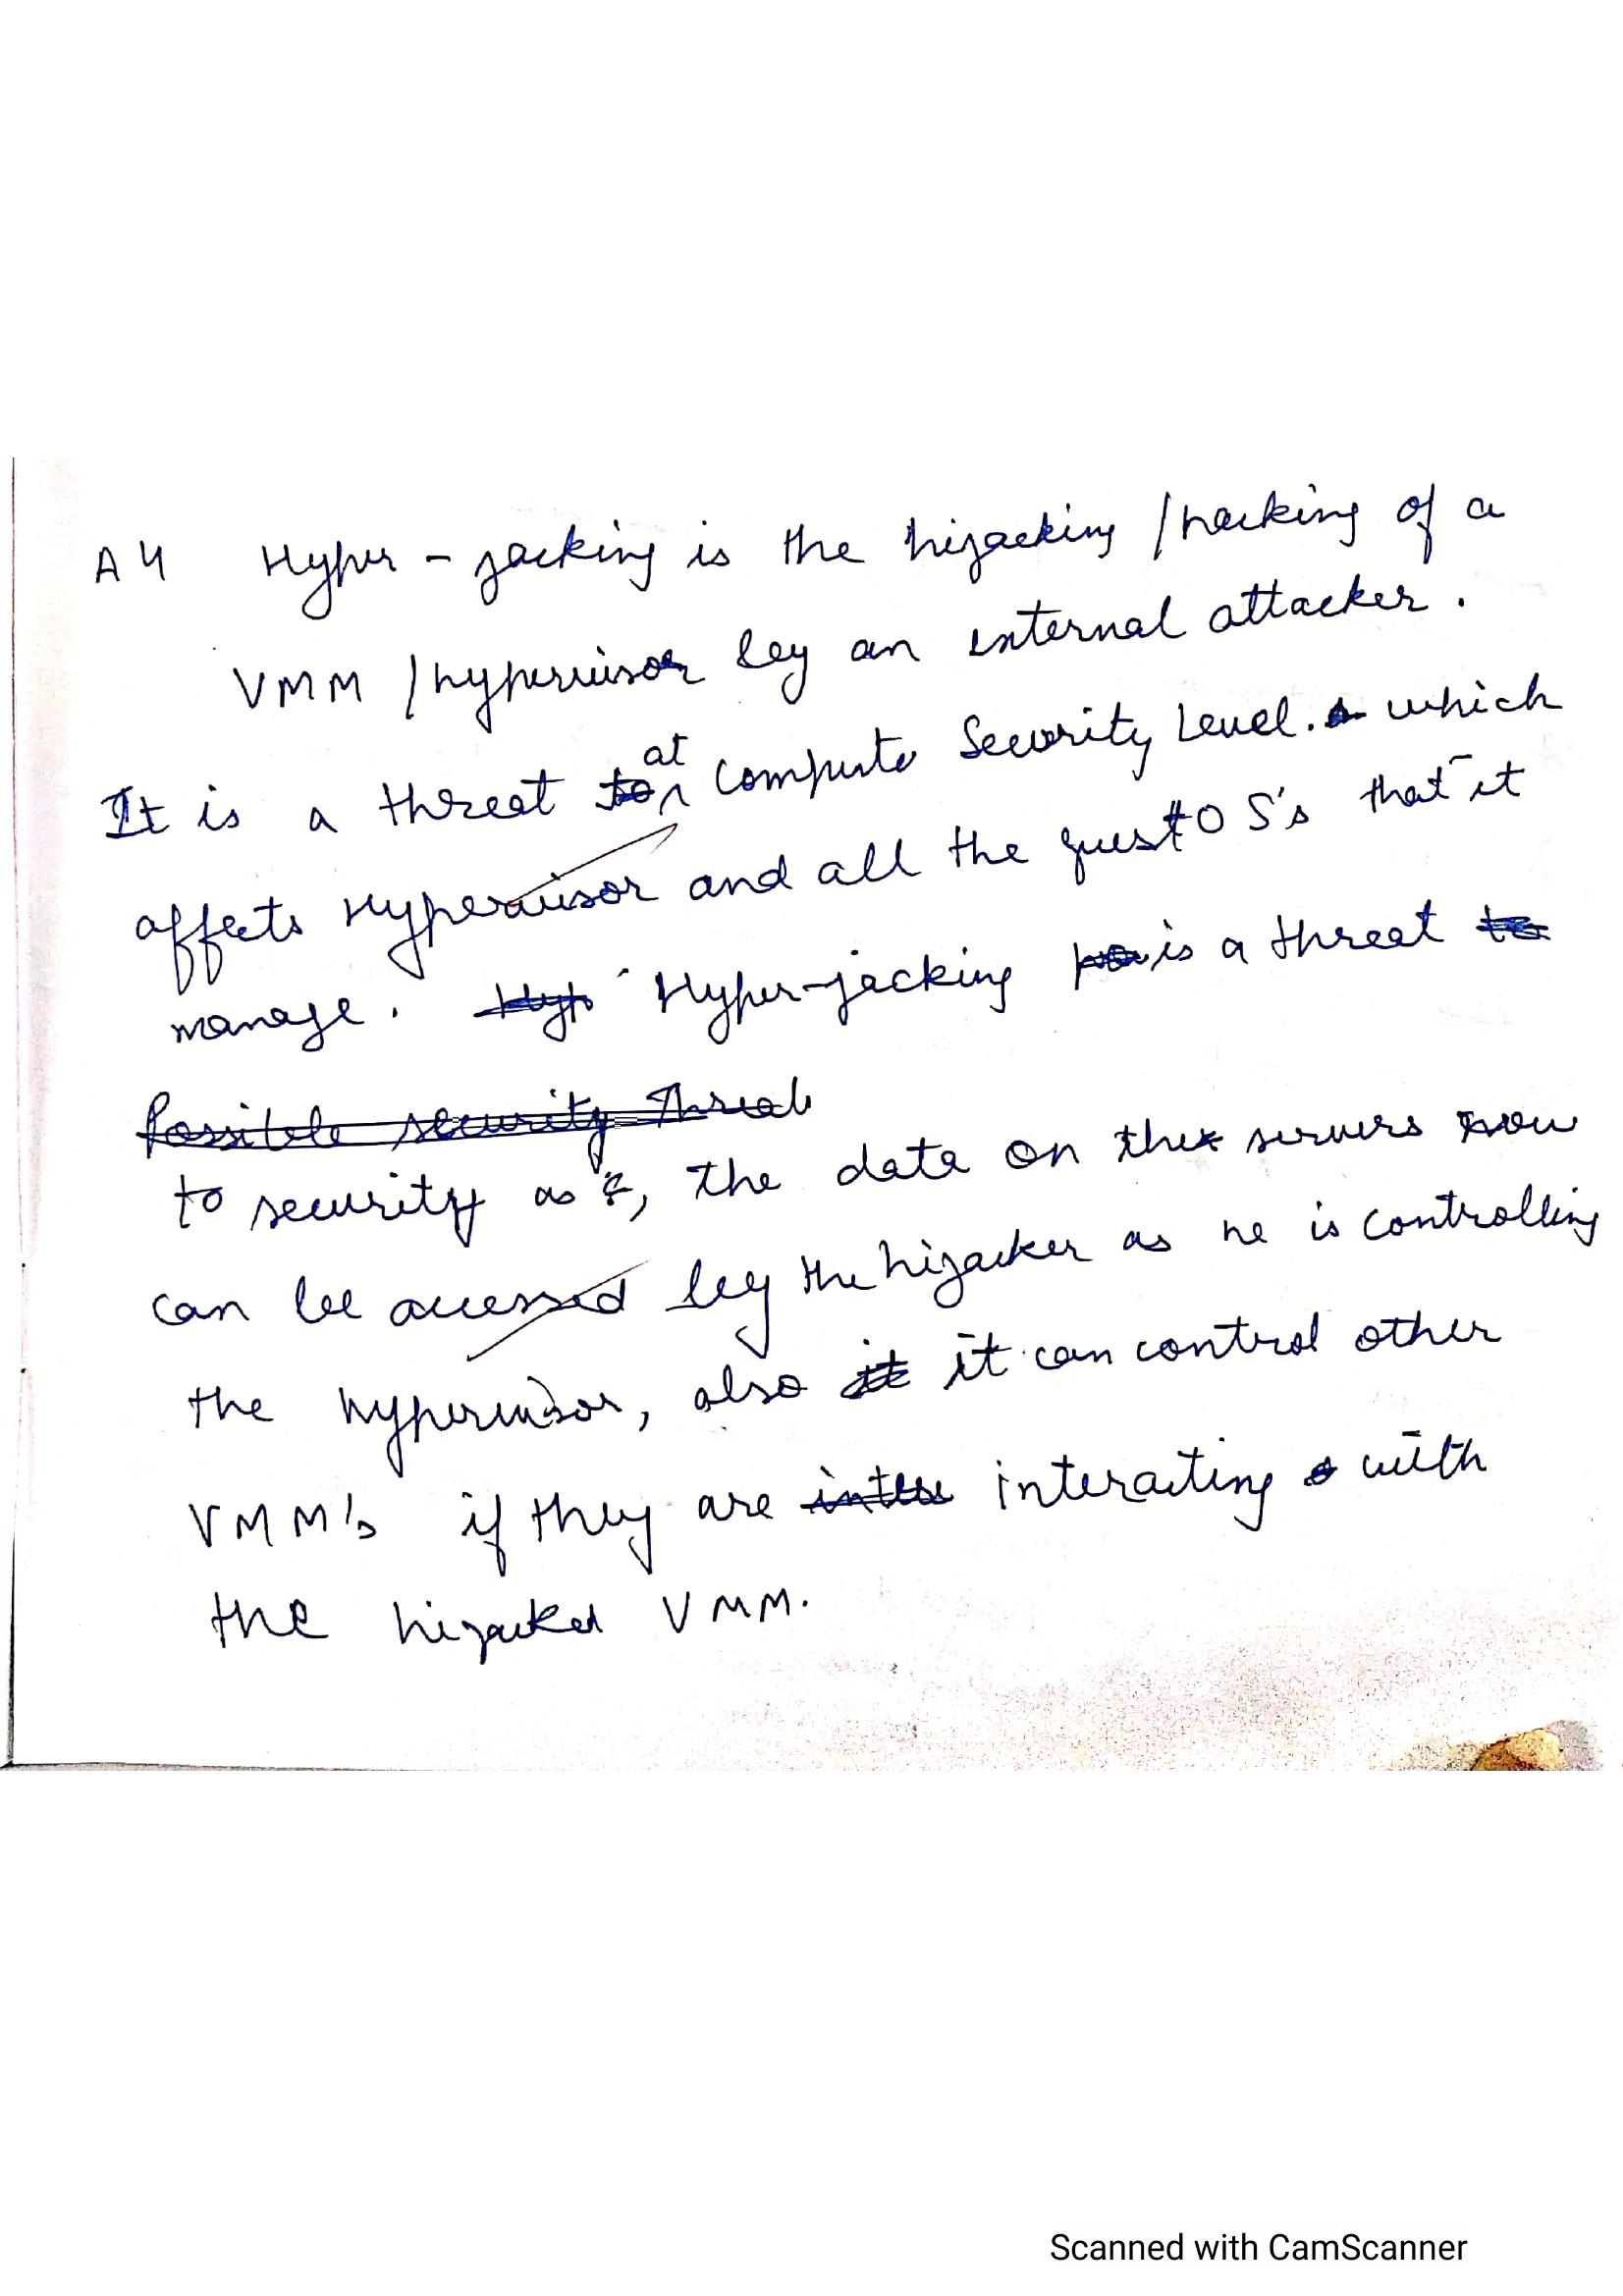 A4 Hyper-jacking is the hijacking /hacking of a
VMM /hypervisor by an internal attacker.
It is a threat at compute Security Level. which
affects Hypervisor and all the guest OS's that it
manage. Hyper-jacking is a threat
to security as, the data on the servers now
can be accessed by the hijacker as he is controlling
the hypervisor, also it can control other
VMM's if they are interacting with
the hijacked VMM.
Scanned with CamScanner